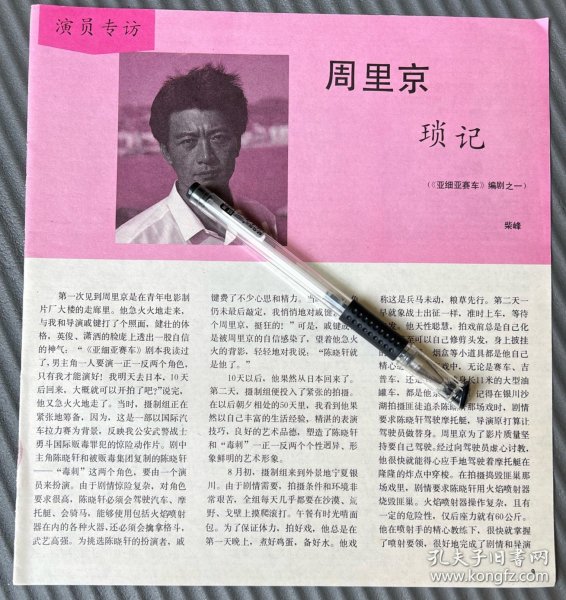 演员专访
周里京
琐记
(《亚细亚赛车》编剧之一)
柴峰
第一次见到周里京是在青年电影制
片厂大楼的走廊里。他急火火地走来，
与我和导演戚健打了个照面，健壮的体
格，英俊、潇洒的脸庞上透出一股自信
的神气：“《亚细亚赛车》剧本我读过
了，男主角一人要演一正一反两个角色，
只有我才能演好！我明天去日本，10天
后回来，大概就可以开拍了吧？”说完，
他又急火火地走了。当时，摄制组正在
紧张地筹备，因为，这是一部以国际汽
车拉力赛为背景，反映我公安武警战士
勇斗国际贩毒罪犯的惊险动作片。剧中
主角陈晓轩和被贩毒集团复制的陈晓轩
——“毒刺”这两个角色，要由一个演
员来扮演。由于剧情惊险复杂，对角色
要求很高，陈晓轩必须会驾驶汽车、摩
托艇、会骑马，能够使用包括火焰喷射
器在内的各种火器，还必须会擒拿格斗，
武艺高强。为挑选陈晓轩的扮演者，戚
健费了不少心思和精力。当
仍未最后敲定，我悄悄地对戚健
个周里京，挺狂的！”可是，戚健
是被周里京的自信感染了，望着他急火
火的背影，轻轻地对我说：“陈晓轩就
是他了。”
10天以后，他果然从日本回来了。
第二天，摄制组便投入了紧张的拍摄。
在以后朝夕相处的50天里，我看到他果
然以自己丰富的生活经验，精湛的表演
技巧，良好的艺术品德，塑造了陈晓轩
和“毒刺”一正一反两个个性迥异、形
象鲜明的艺术形象。
8月初，摄制组来到外景地宁夏银
川。由于剧情需要，拍摄条件和环境非
常艰苦，全组每天几乎都要在沙漠、荒
野、戈壁上摸爬滚打。午餐有时光啃面
包。为了保证体力，拍好戏，他总是在
第一天晚上，煮好鸡蛋，备好水。他戏
称这是兵马未动，粮草先行。第二天一
早就象战士出征一样，准时上车，等待
发。他天性聪慧，拍戏前总是自己化
至可以自己修剪头发，身上披挂
烟盒等小道具都是他自己
精心
戏中，无论是赛车、吉
普车、还
身长11米的大型油
罐车，都是他
记得在银川沙
湖拍摄匪徒追杀陈
那场戏时，剧情
要求陈晓轩驾驶摩托艇，导演原打算让
驾驶员做替身。周里京为了影片质量坚
持要自己驾驶。经过向驾驶员虚心讨教，
他很快就能得心应手地驾驶着摩托艇在
隆隆的炸点中穿梭。在拍摄捣毁匪巢那
场戏里，剧情要求陈晓轩用火焰喷射器
烧毁匪巢。火焰喷射器操作复杂，且有
一定的危险性，仅后座力就有60公斤。
他在喷射手的精心教练下，很快就掌握
了喷射要领，很好地完成了剧情和导演
9
孔夫子旧书网
www.kongfz.com